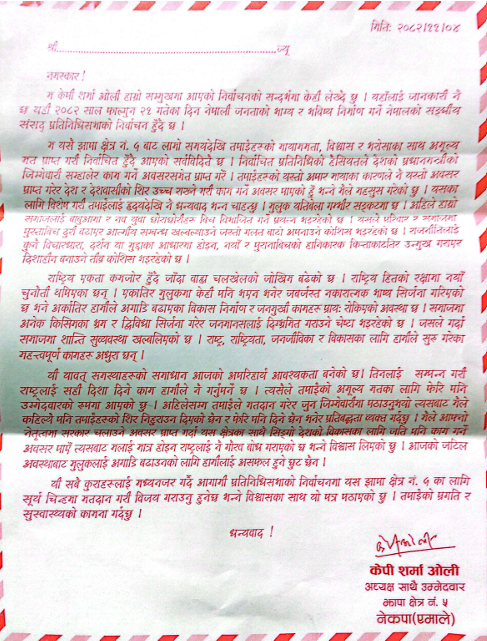 मितिः २०८२/११/०४
श्री..........................................................ज्यू
नमस्कार !
म केपी शर्मा ओली हाम्रो सम्मुखमा आएको निर्वाचनको सन्दर्भमा केही लेख्दै छु । यहाँलाई जानकारी नै
छ यही २०८२ साल फाल्गुन २१ गतेका दिन नेपाली जनताको भाग्य र भविष्य निर्माण गर्ने नेपालको सङ्घीय
संसद् प्रतिनिधिसभाको निर्वाचन हुँदै छ ।
म यसै झापा क्षेत्र नं. ५ बाट लामो समयदेखि तपाईहरुको मायाममता, विश्वास र भरोसाका साथ अमूल्य
मत प्राप्त गरी निर्वाचित हुँदै आएको सर्वविदितै छ । निर्वाचित प्रतिनिधिको हैसियतले देशको प्रधानमन्त्रीको
जिम्मेवारी सम्हालेर काम गर्ने अवसरसमेत प्राप्त गरें । तपाईहरुको यस्तो अपार मायाका कारणले नै यस्तो अवसर
प्राप्त गरेर देश र देशवासीको शिर उच्च राख्ने गरी काम गर्ने अवसर पाएको हुँ भन्ने मैले महसुस गरेको छु । यसका
लागि विशेष गरी तपाईलाई हृदयदेखि नै धन्यवाद भन्न चाहन्छु । मुलुक यतिबेला गम्भीर सङ्कटमा छ । अहिले हाम्रो
समाजलाई बाबुआमा र नव युवा छोराछोरीहरु बिच विभाजित गर्ने प्रयत्न भइरहेको छ । यसले परिवार र समाजमा
मुस्ताविच दुरी बढाएर आत्मीय सम्बन्ध खल्बल्याउने जस्तो गलत बाटो अपनाउने कोशिस भइरहेको छ । राजनीतिलाई
कुनै विचारधारा, दर्शन वा मुद्दाका आधारमा होइन, नयाँ र पुरानाबिचको हानिकारक किनाकाटतिर उन्मुख गराएर
दिशाहीन बनाउने तीव्र कोशिस भइरहेको छ ।
राष्ट्रिय एकता कमजोर हुँदै जाँदा बाह्य चलखेलको जोखिम बढेको छ । राष्ट्रिय हितको रक्षामा नयाँ
चुनौती थपिएको छन् । एकातिर मुलुकमा केही पनि भएन भनेर जबर्जस्त नकारात्मक भाष्य सिर्जना गरिएको
छ भने अर्कोतिर हामीले अगाडि बढाएका विकास निर्माण र जनमुखी कामहरु प्रायः रोकिएको अवस्था छ । समाजमा
अनेक किसिमका भ्रम र द्विविधा सिर्जना गरेर जनमानसलाई दिग्भ्रमित गराउने चेष्टा भइरहेको छ । जसले गर्दा
समाजमा शान्ति सुव्यवस्था खल्बलिएको छ । राष्ट्र, राष्ट्रियता, जनजीविका र विकासका लागि हामीले सुरु गरेका
महत्त्वपूर्ण कामहरु अधुरा छन् ।
यी यावत् समस्याहरुको समाधान आजको अपरिहार्य आवश्यकता बनेको छ। तिनलाई सम्पन्न गरी
राष्ट्रलाई सही दिशा दिने काम हामीले नै गर्नुपर्ने छ । त्यसैले तपाईको अमूल्य मतका लागि फेरि पनि
उम्मेदवारको रूपमा आएको छु । अहिलेसम्म तपाईले मतदान गरेर जुन जिम्मेवारीमा पठाउनुभयो त्यसबाट मैले
कहिल्यै पनि तपाईहरुको शिर निहुराउन दिएको छैन र फेरि पनि दिने छैन भनेर प्रतिबद्धता व्यक्त गर्दछु । मैले आफ्नो
नेतृत्वमा सरकार चलाउने अवसर प्राप्त गर्दा यस क्षेत्रका साथै सिङ्गो देशको विकासका लागि जति पनि काम गर्ने
अवसर पाएँ त्यसबाट मलाई मात्र होइन राष्ट्रलाई नै गौरव बोध गराएको छ भन्ने विश्वास लिएको छु । आजको जटिल
अवस्थाबाट मुलुकलाई अगाडि बढाउनको लागि हामीलाई असफल हुने छुट छैन ।
यी सबै कुराहरुलाई मध्यनजर गर्दै आगामी प्रतिनिधिसभाको निर्वाचनमा यस झापा क्षेत्र नं. ५ का लागि
सूर्य चिन्हमा मतदान गरी विजय गराउनु हुनेछ भन्ने विश्वासका साथ यो पत्र पठाएको छु । तपाईको प्रगति र
सुस्वास्थ्यको कामना गर्दछु ।
धन्यवाद !
केपी शर्मा ओली
अध्यक्ष साथै उम्मेदवार
झापा क्षेत्र नं. ५
नेकपा(एमाले)